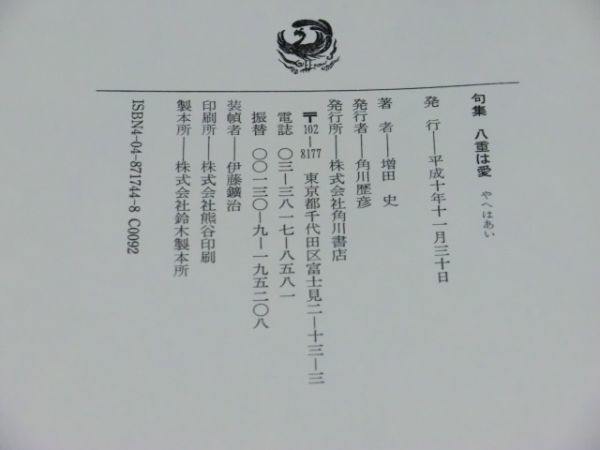 句集 八重は愛 やへはあい
発 行──平成十年十一月三十日
著 者──増田 史
発行者──角川歴彦
発行所──株式会社角川書店
〒102─8177 東京都千代田区富士見二─十三─三
電話 〇三─三八一七─八五八一
振替 〇〇一三〇─九─一九五二〇八
装幀者──伊藤鑛治
印刷所──株式会社熊谷印刷
製本所──株式会社鈴木製本所
ISBN4-04-871744-8 C0092